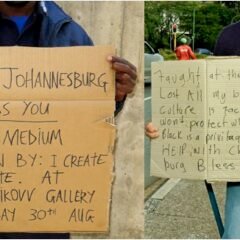 JOHANNESBURG
SS YOU
MEDIUM
N BY: I CREATE
TE. AT
IKOVV GALLERY
AY 30TH AUG
Taught at the
Lost All my b
culture is
wont protect w
Black is a
HELP, with Ch
burg Bless